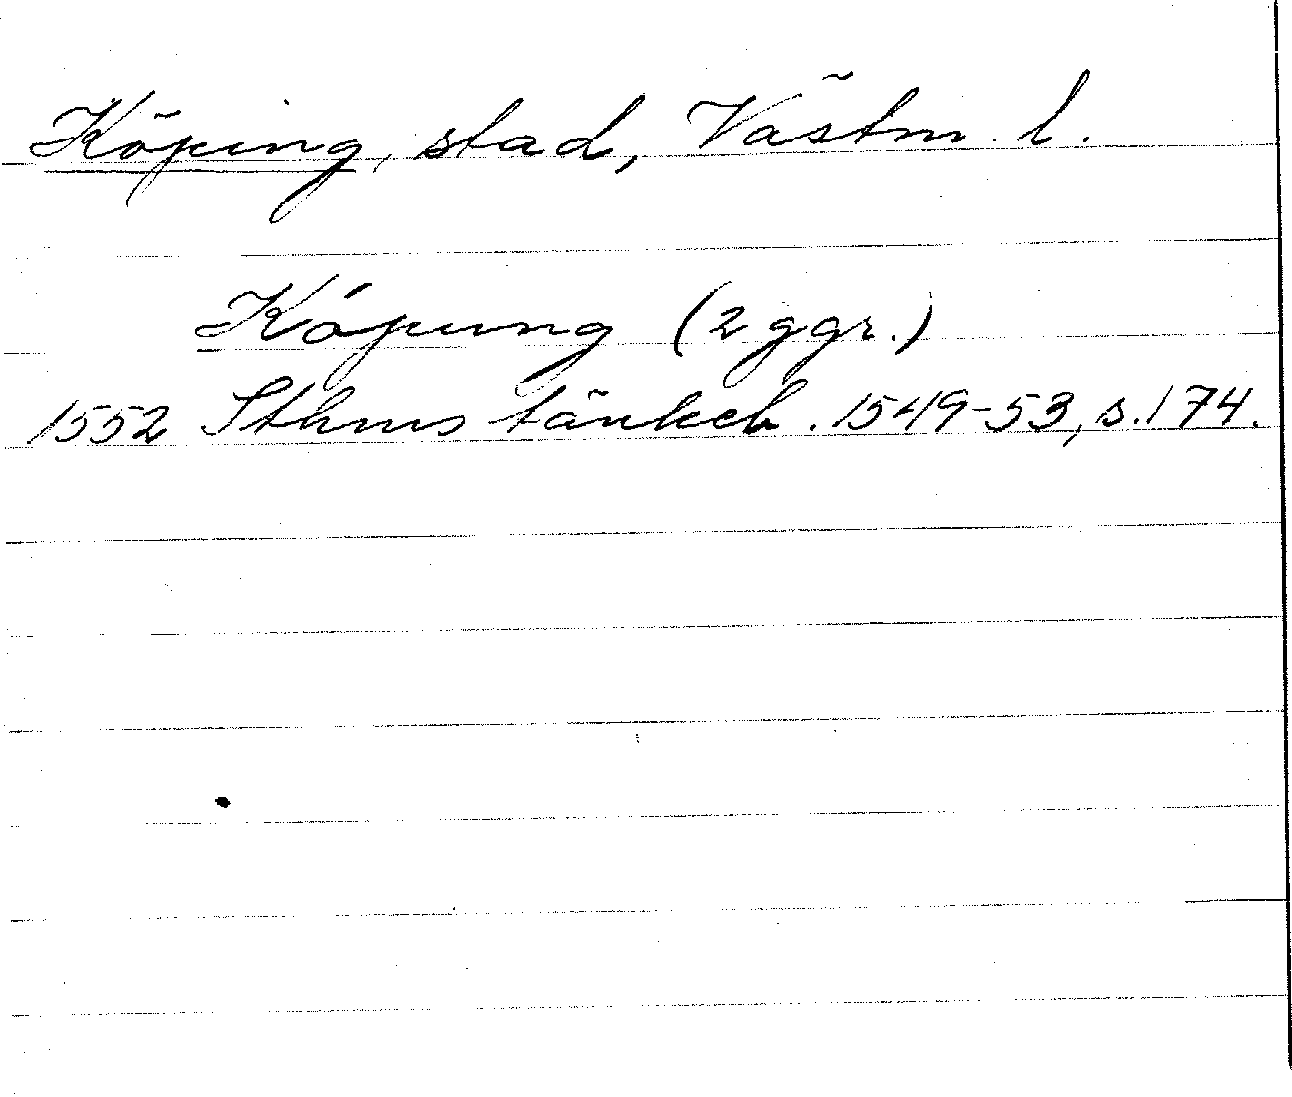 Köping, stad, Västm. l.
Kópung (2 ggr.)
1552 Sthms tänkeb. 1549-53, s. 174.